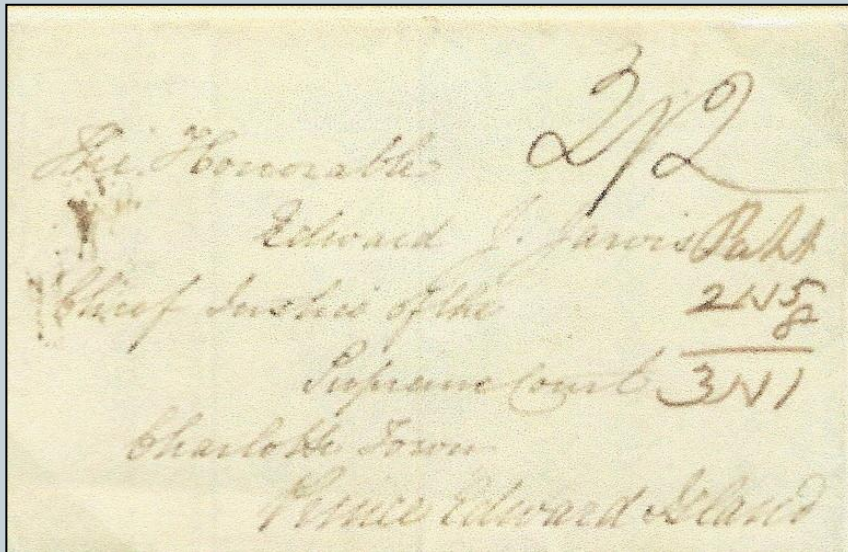 2/2
The Honorable
Edward J. Jarvis
Chief Justice of the
2N5
8
Supreme Court
3N1
Charlotte Town
Prince Edward Island